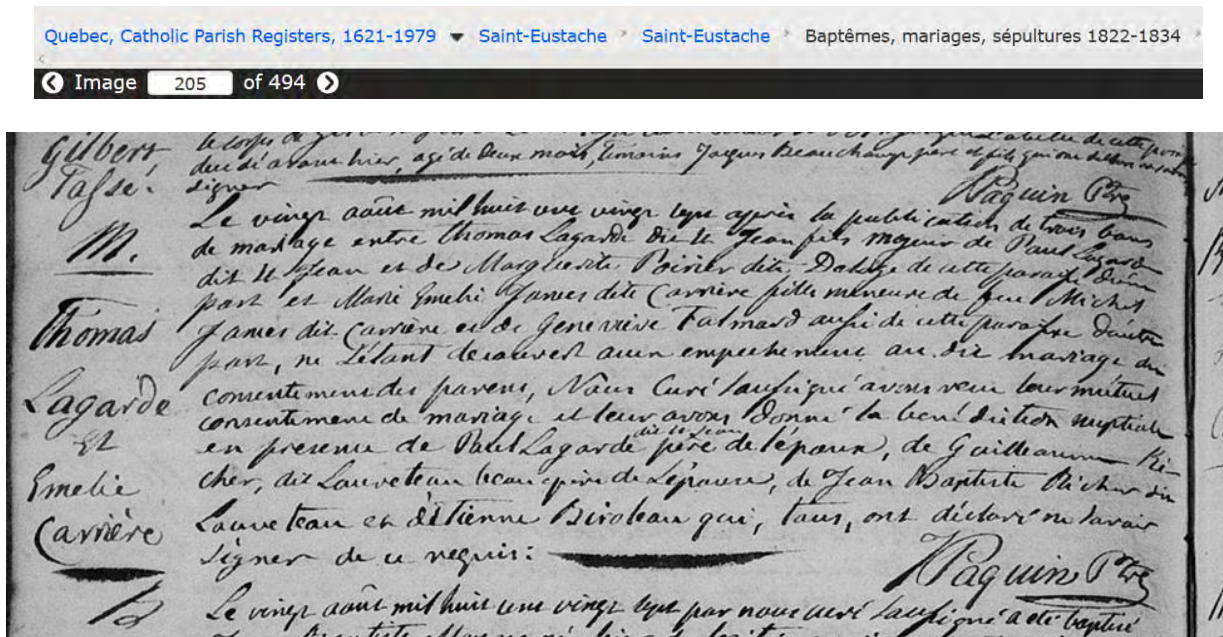 Quebec, Catholic Parish Registers, 1621-1979 Saint-Eustache Saint-Eustache Baptêmes, mariages, sépultures 1822-1834
Image 205 of 494
Gilbert
Tassé.
le corps de
decédé avant hier, agé de deux mois, temoins Jacques Beauchamp père et fils qui ont déclaré ne savoir
signer
Paquin Ptre
M.
Thomas
Lagarde
Et
Emelie
Carrière
Le vingt août mil huit cent vingt sept après la publication de trois bans
de mariage entre Thomas Lagarde dit St Jean fils majeur de Paul Lagarde
dit St Jean et de Marguerite Poirier dite Deloge de cette paroisse d'une
part et Marie Emelie Jamés dite Carrière fille mineure de feu Michel
James dit Carrière et de Geneviève Talmard aussi de cette paroisse d'autre
part, ne s'étant decouvert aucun empechement au dit mariage du
consentement des parens, Nous Curé soussigné avons reçu leur mutuel
consentement de mariage et leur avons donné la benédiction nuptiale
en presence de Paul Lagarde dit St Jean père de l'époux, de Guilleaume Ri-
cher, dit Louveteau beau père de L'épouse, de Jean Baptiste Richer dit
Louveteau et d'Etienne Biroleau qui, tous, ont déclaré ne savoir
signer de ce requis:
Paquin Ptre
B
Le vingt août mil huit cent vingt sept par nous curé soussigné a été baptisé